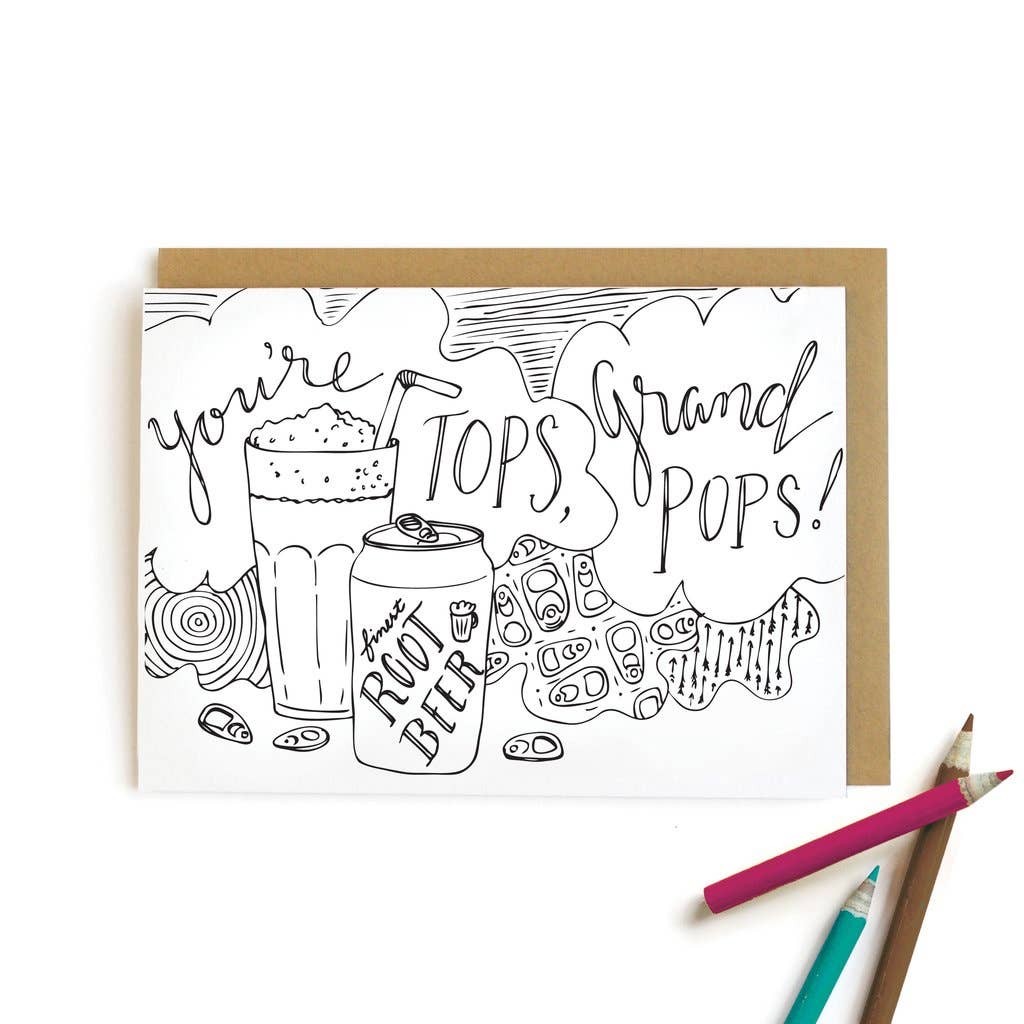 you're
TOPS,
grand
POPS!
finest
ROOT
BEER